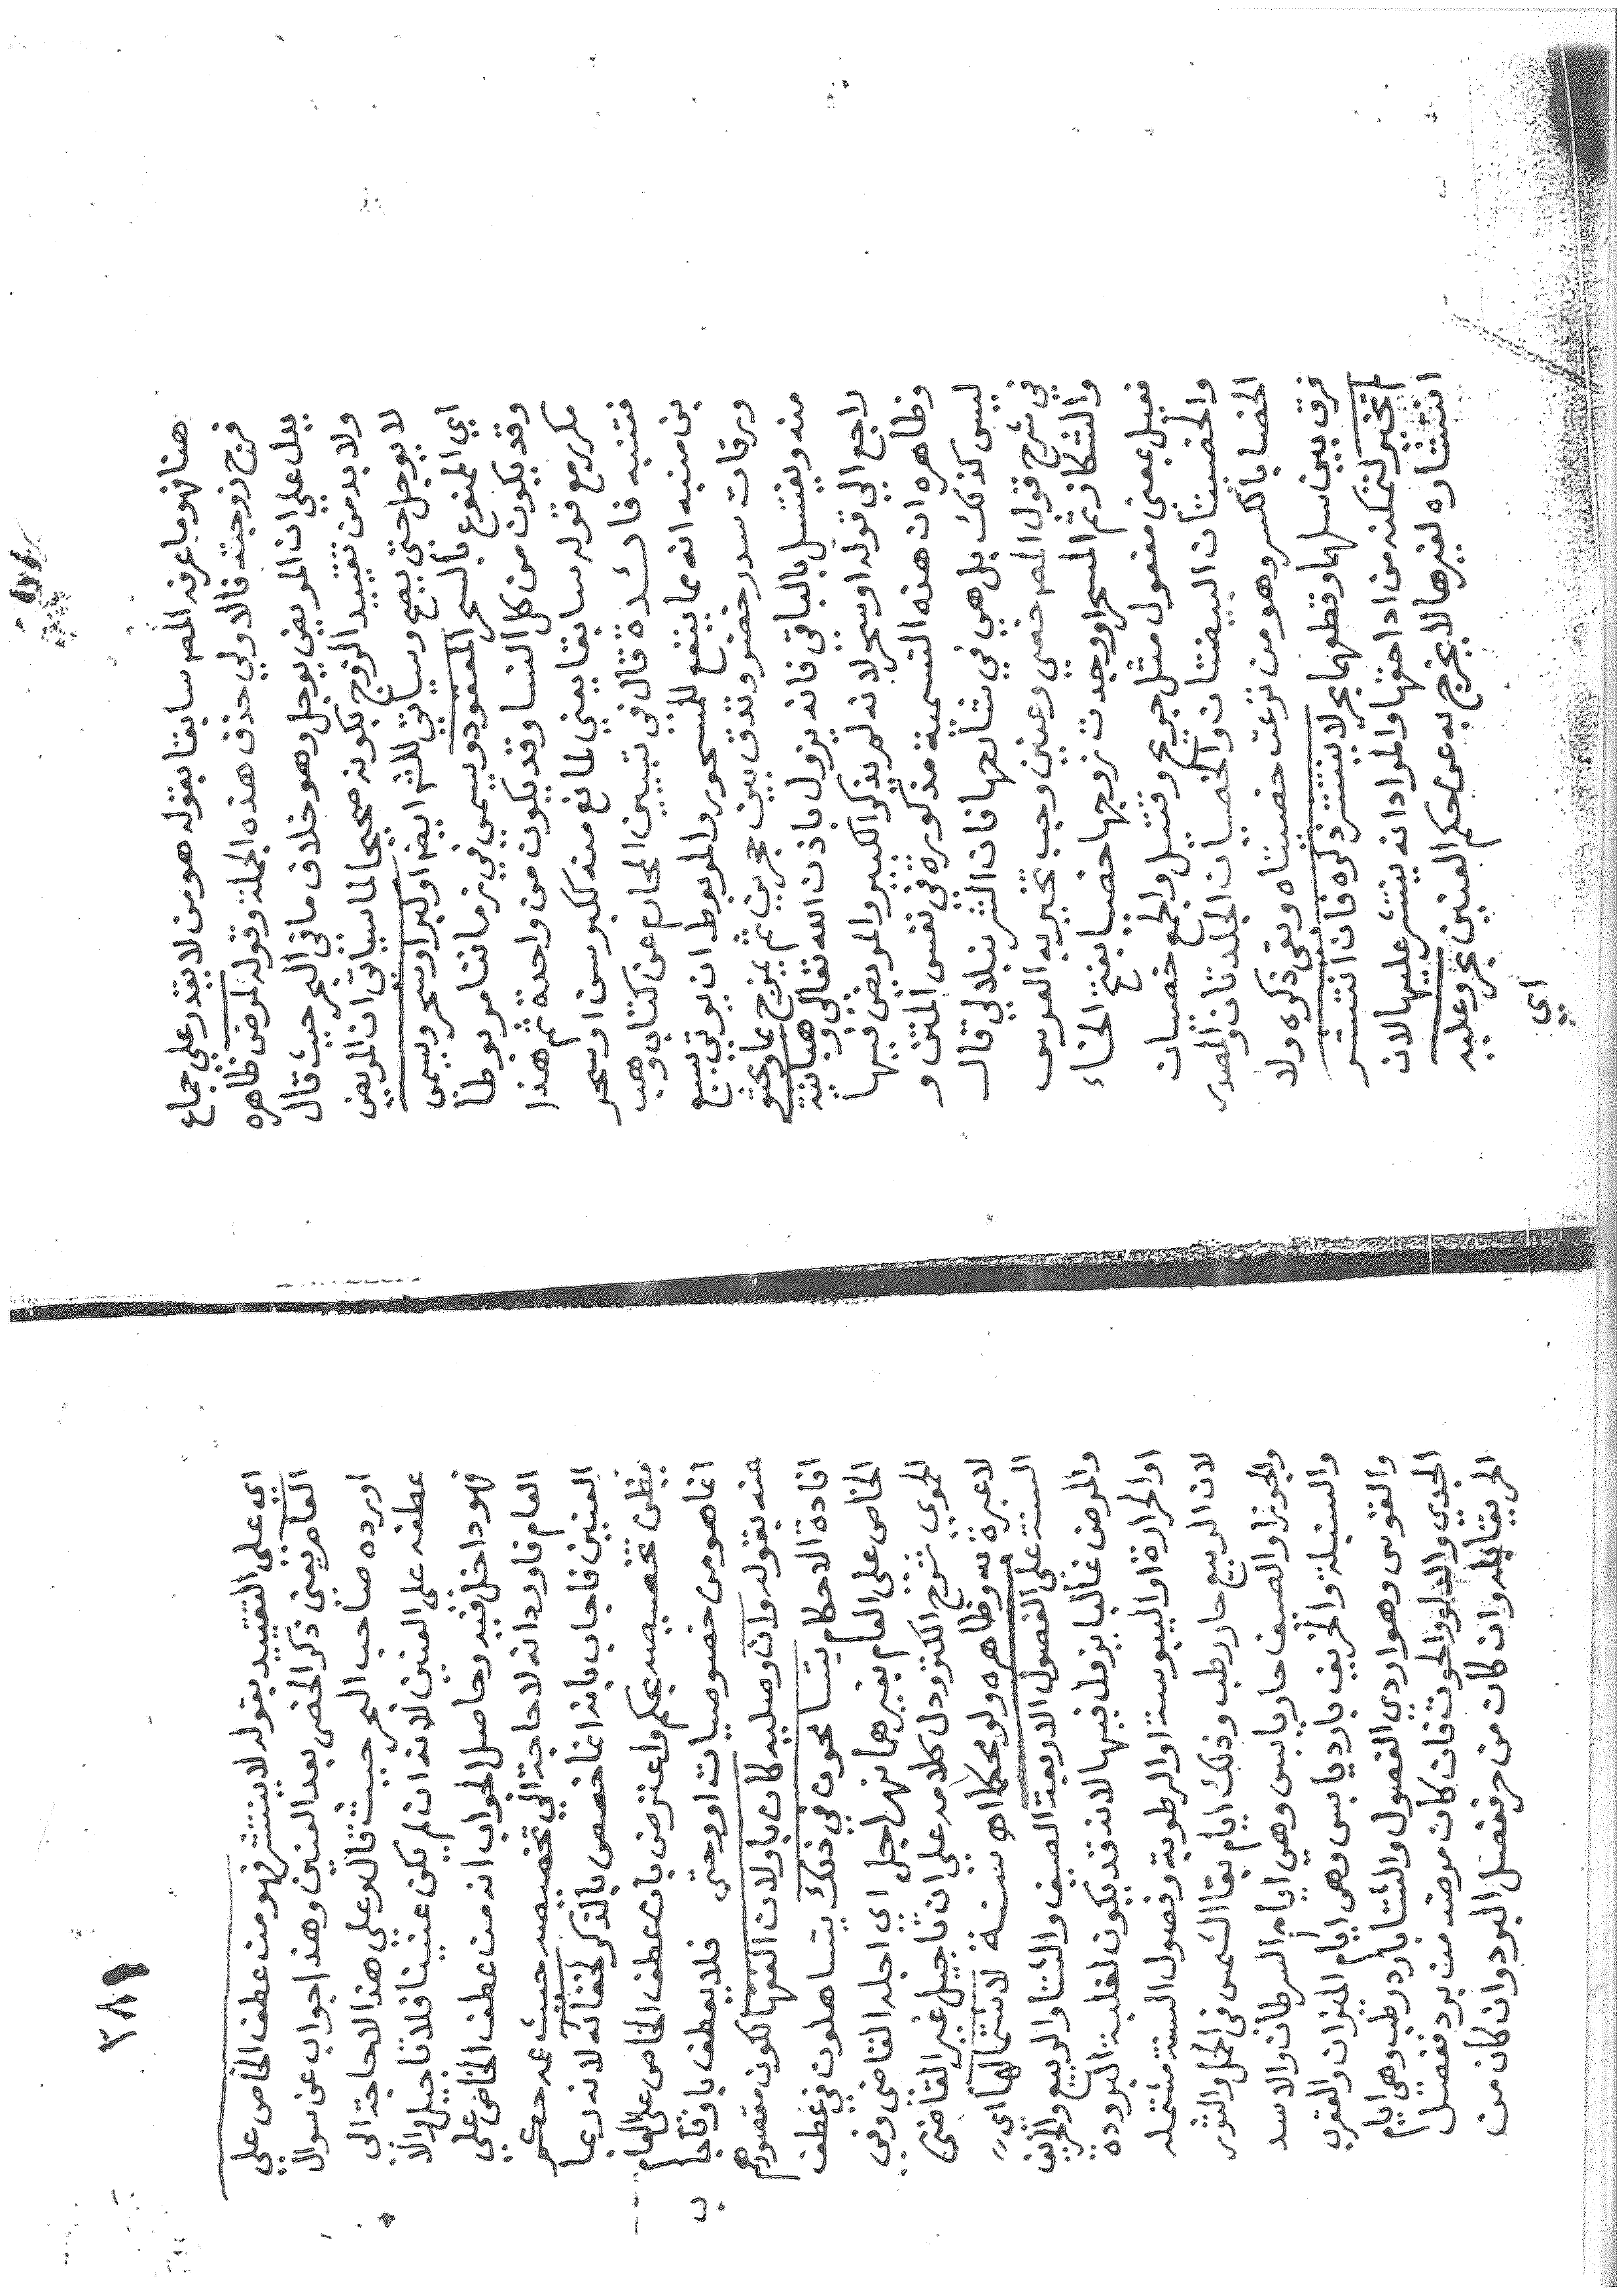 هنا فهو ما عرفه المصر سابقا بقوله هو من لا يقدر على جماع
فرج زوجته فالاولي حذف هذه الجملة وقوله لمرض ظاهره
يدل علي ان المريض يوجل وهو خلاف ما في البحر حيث قال
ولا بد من تقييد الزوج بكونه صحيحا لما سياتي ان المريض
لا يوجل حتي يصح وسياتي للش ايضا او كبر او سحر ويسمي
اي الممنوع بالسحر المعقود ويسمي في زماننا مربوطا
وقد يكون من كل النسا وقد يكون من واحدة ثم هذا
مكرر مع قوله سابقا يعني لمانع منه ككبر سن او سحر
فتنبه فائدة قال في تبيين المحارم عن كتاب وهب
بن منبه انه مما ينفع للمسحور والمربوط ان يوتي بسبع
ورقات سدر خضر وتدق بين حجرين ثم تمزج بما ويحسو
منه ويغتسل بالباقي فانه يزول باذن الله تعالى وهبانية
راجع الي قوله او سحر لانه لم يذكر الكبير والمريض فيها
وظاهره ان هذه التسمية مذكورة في نفس المتن و
ليس كذلك بل هي في شارحها فان الشرنبلالي قال
في شرح قول المصر خصي وعنين وجب تخيير به العرس
والشكاز ثم المسحر او وجدت زوجها خصيا بفتح الخاء
فعيل بمعني مفعول مثل جريح وقتيل والجمع خصيان
والخصيتان البيضتان والخصيان الجلدتان والمصدر
الخصا بالكسر وهو من نزعت خصيتاه وبقي ذكره ولا
فرق بين سلهما وقطعهما بحر لا ينتشر ذكره فان انتشر
لم تخير لتمكنه من اداحقها والمراد انه ينتشر عليها لان
انتشاره لغيرها لا يخرج به عن حكم العنين بحر وعليه
اي
٣٨٩
اي على التقييد بقوله لا ينتشر فهو من عطف الخاص علي
العام يعني ذكر الخصي بعد العنين وهذا جواب عن سوال
اورده صاحب البحر حيث قال وعلى هذا لا حاجة الى
عطفه على العنين لانه ان لم يكن عنينا فلا تاجيل والا
فهو داخل فيه وحاصل الجواب انه من عطف الخاص علي
العام فاورد انه لا حاجة الي تخصيصه حيث عمه حكم
العنين فاجاب بانه انما خصص بالذكر لخفائه لانه ربما
يظن تخصيصه بحكم واعترض بان عطف الخاص على العام
انما هو من خصوصيات او وحتي فلا يعطف باو فاجا
عنه بقوله وان ومليه كان باولان الفقها لكون مقصودهم
افادة الاحكام يتسامحون في ذلك يتساهلون في عطف
الخاص على العام بغيرهما نهر اجل اي اجله القاضي وفي
الحموي شرح الكنز ودل كلامه علي ان تاجيل غير القاضي
لا عبرة به وظاهره ولو محكما اه سنة لاشتمالها اي
السنة على الفصول الاربعة الصيف والشتا والربيع والخريف
والمرض غالبا يزول فيها لانه قد يكون لغلبة البرودة
او الحرارة او اليبوسة او الرطوبة وفصول السنة مشتملة
لان الربيع حار رطب وذلك ايام بقا الشمس في الحمل والثور
والجوزا والصيف حار يابس وهي ايام السرطان والاسد
والسنبلة والخريف بارد يابس وهي ايام الميزان والعقرب
والقوس وهو اردي الفصول والشتا بارد رطب وهي ايام
الجدي والدلو والحوت فان كان مرضه من برد ففصل
الحر يقابله وان كان من حر ففصل البرد وان كان من